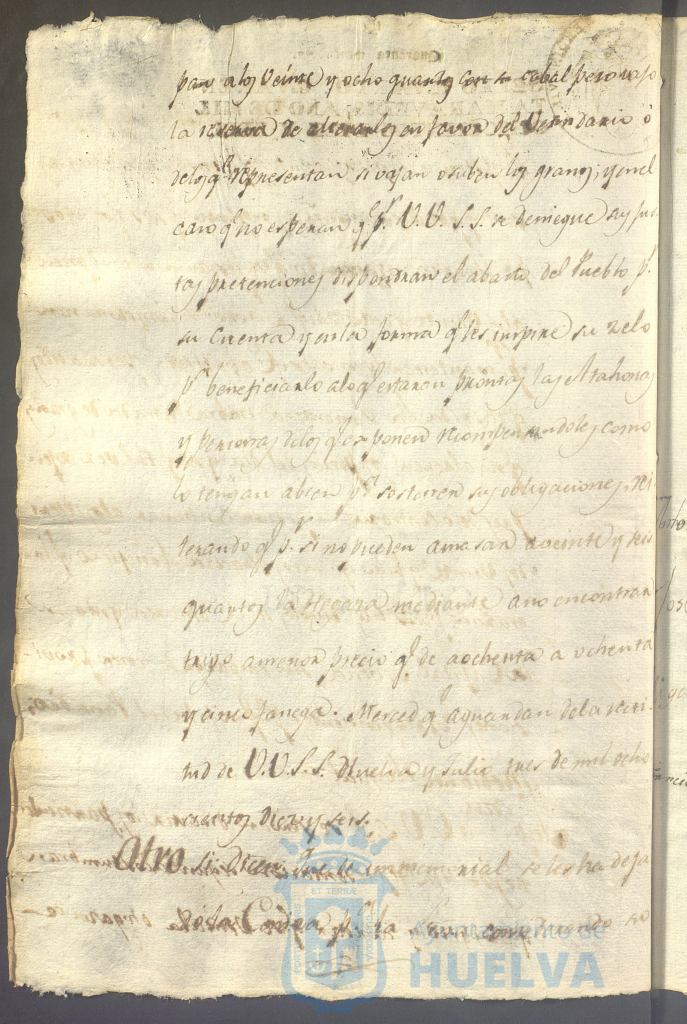 pan a los Veinte y ocho quartos con cabal peso vajo
la reserva de alterarles en favor del Vecindario ó
delos qe representan si vajan o suben los granos; y en el
caso qe no esperan qe pr. V.V. S.S. se deniegue sus jus
tas pretenciones dispondran el abasto del Pueblo pr.
su cuenta y en la forma qe les inspire su zelo
pa. beneficiarlo alo qe estaran prontas las Atahonas
y personas delos qe exponen recompensandoles como
lo tengan abien pa. sostener sus obligaciones, rei
terando qe pr. si no pueden amasar aveinte y seis
quartos la Hogaza mediante ano encontrar
trigo amenor precio qe de aochenta a ochenta
y cinco fanega. Merced qe aguardan dela recti
tud de V.V.S.S. Huelva y Julio tres de mil ocho
cientos diez y seis.
Otro si Dicen: Que de immemorial se les ha deja
do la pr. la
Ayuntamiento de
HUELVA